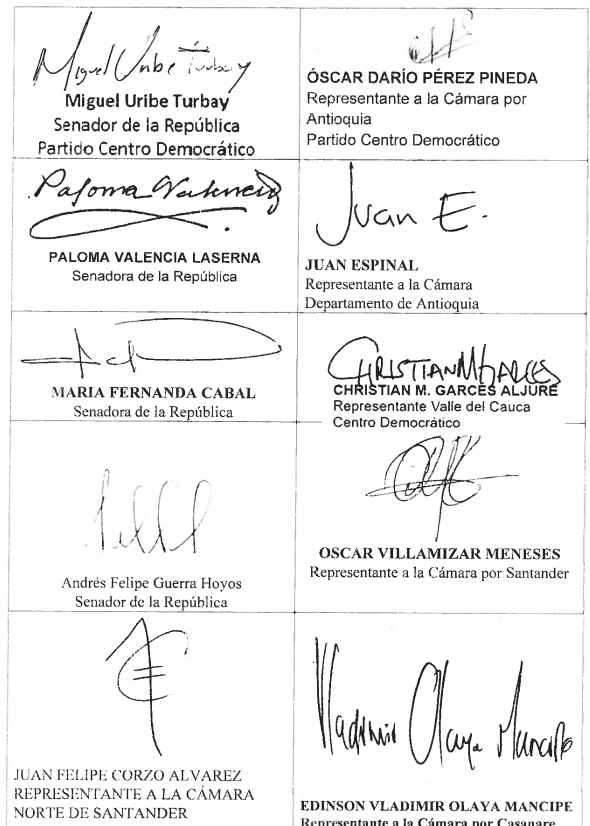 Miguel Uribe Turbay
Miguel Uribe Turbay
Senador de la República
Partido Centro Democrático
ÓSCAR DARÍO PÉREZ PINEDA
Representante a la Cámara por
Antioquia
Partido Centro Democrático
Paloma Valencia
PALOMA VALENCIA LASERNA
Senadora de la República
Juan E.
JUAN ESPINAL
Representante a la Cámara
Departamento de Antioquia
MARIA FERNANDA CABAL
Senadora de la República
CHRISTIAN M GARCES
CHRISTIAN M. GARCÉS ALJURE
Representante Valle del Cauca
Centro Democrático
Andrés Felipe Guerra Hoyos
Senador de la República
OSCAR VILLAMIZAR MENESES
Representante a la Cámara por Santander
JUAN FELIPE CORZO ALVAREZ
REPRESENTANTE A LA CÁMARA
NORTE DE SANTANDER
Vladimir Olaya Mancipe
EDINSON VLADIMIR OLAYA MANCIPE
Representante a la Cámara por Casanare